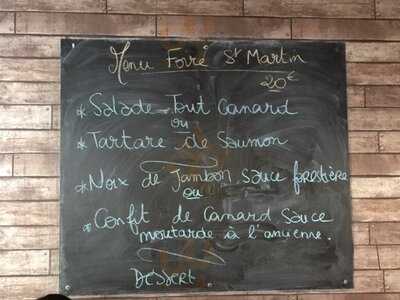 Menu Foiré St Martin
20€
* Salade Tout Canard
ou
* Tartare de Saumon
* Noix de Jambon Sauce forestière
ou
* Confit de Canard Sauce
moutarde à l'ancienne.
DESSERT